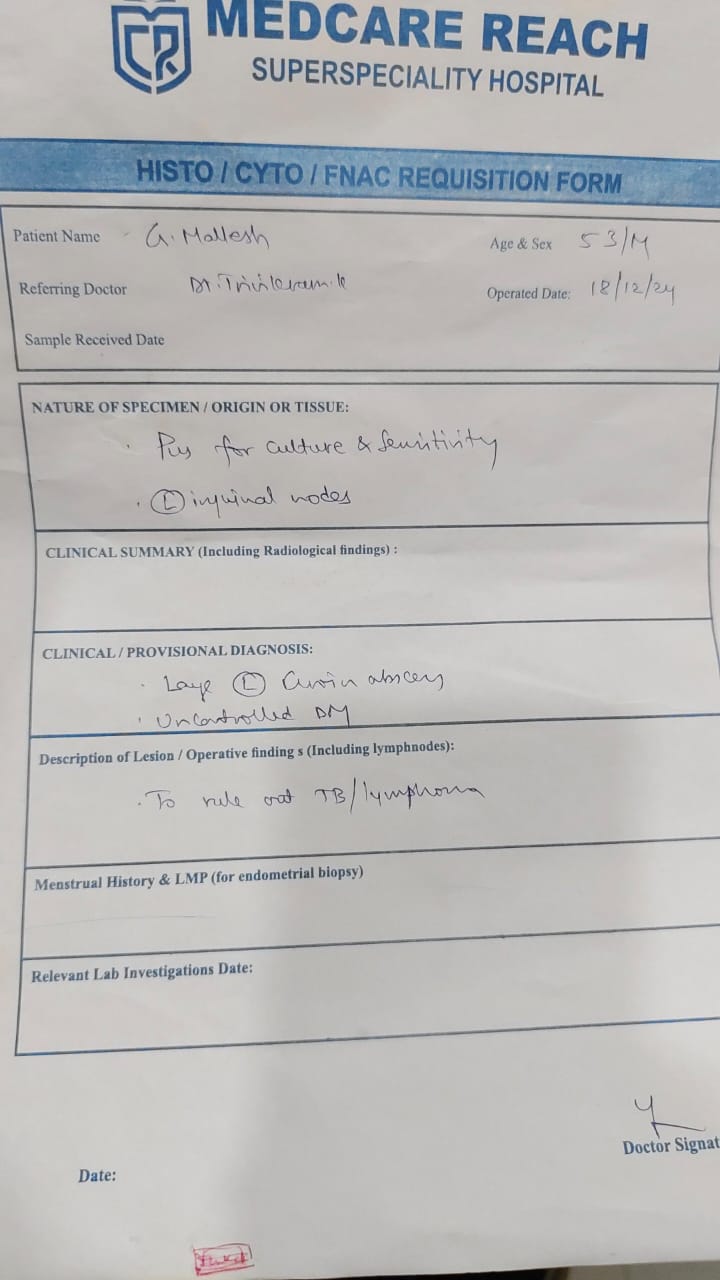 MEDCARE REACH
SUPERSPECIALITY HOSPITAL
HISTO / CYTO / FNAC REQUISITION FORM
Patient Name - G. Mallesh Age & Sex 53/M
Referring Doctor Dr. Trivikram. K Operated Date: 18/12/24
Sample Received Date
NATURE OF SPECIMEN / ORIGIN OR TISSUE:
. Pus for culture & Sensitivity
. (L) inguinal nodes
CLINICAL SUMMARY (Including Radiological findings) :
CLINICAL / PROVISIONAL DIAGNOSIS:
. Large (L) Groin abscess
. Uncontrolled DM
Description of Lesion / Operative finding s (Including lymphnodes):
. To rule out TB/lymphoma
Menstrual History & LMP (for endometrial biopsy)
Relevant Lab Investigations Date:
Doctor Signat
Date: